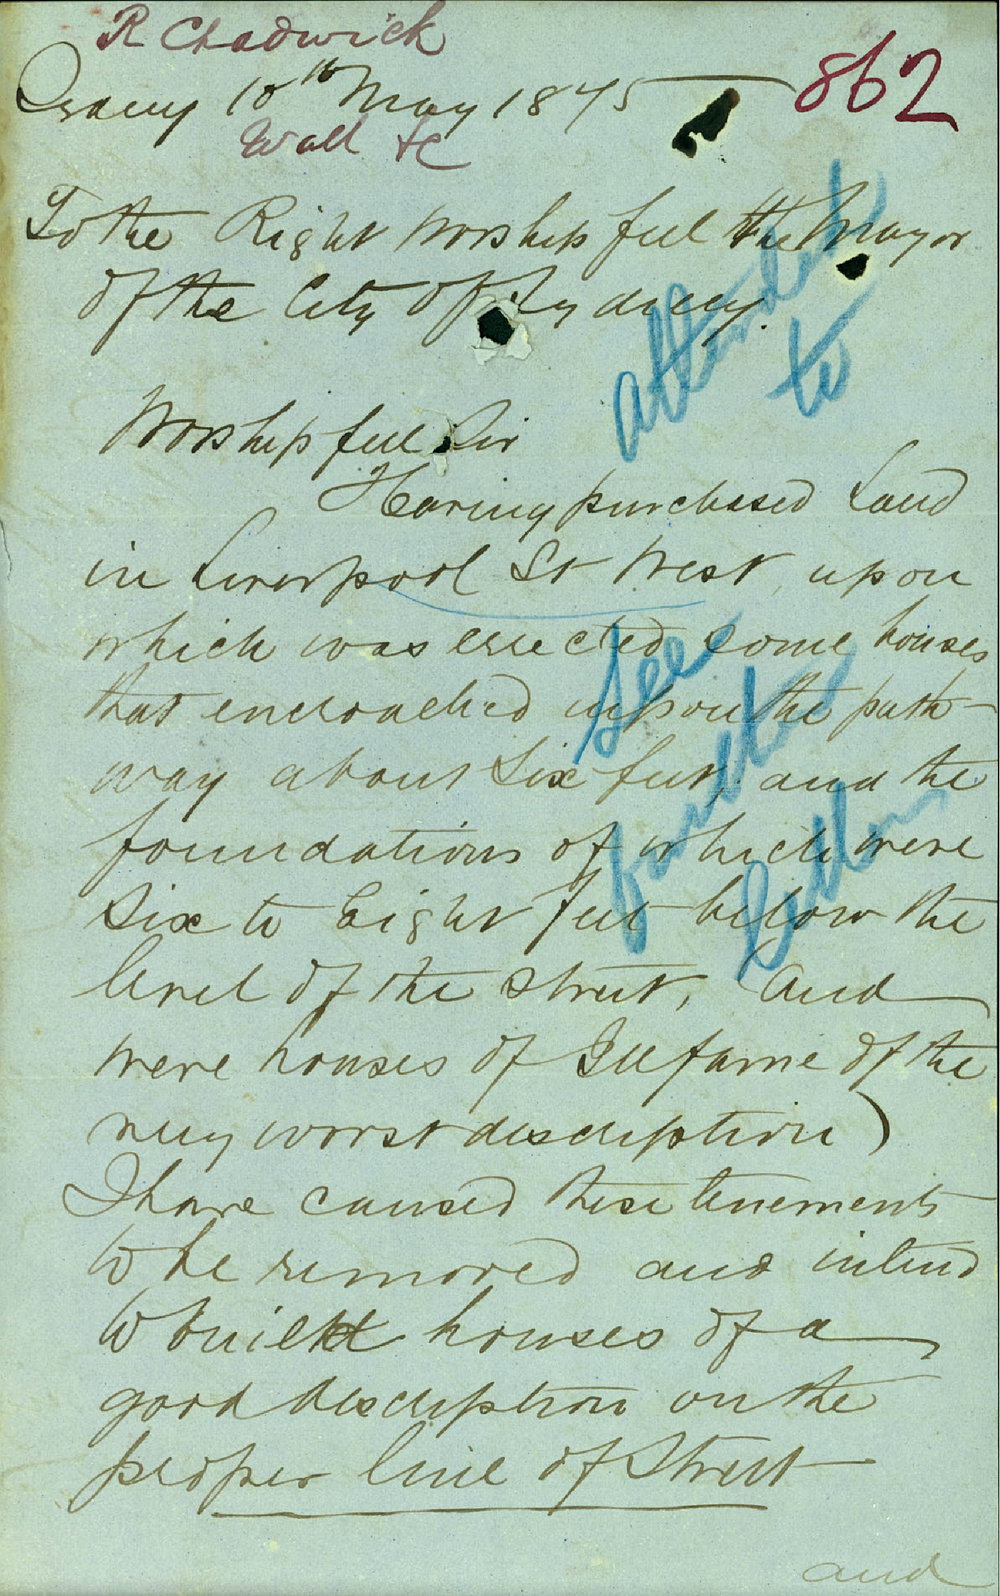 R Chadwick
Sydney 10th May 1875
862
Wall &c
To the Right Worshipful the Mayor
Of the City Of Sydney.
attended
to
Worshipful Sir
Having purchased Land
in Liverpool St West, upon
which was erected some houses
See
that encroached upon the path-
way about Six feet, and the
further
foundations of which were
Letter
Six to Eight feet below the
level of the street, And
were houses of Ill fame of the
very worst description)
I have caused these tenements
to be removed and intend
to build houses of a
good description on the
proper line of Street
and